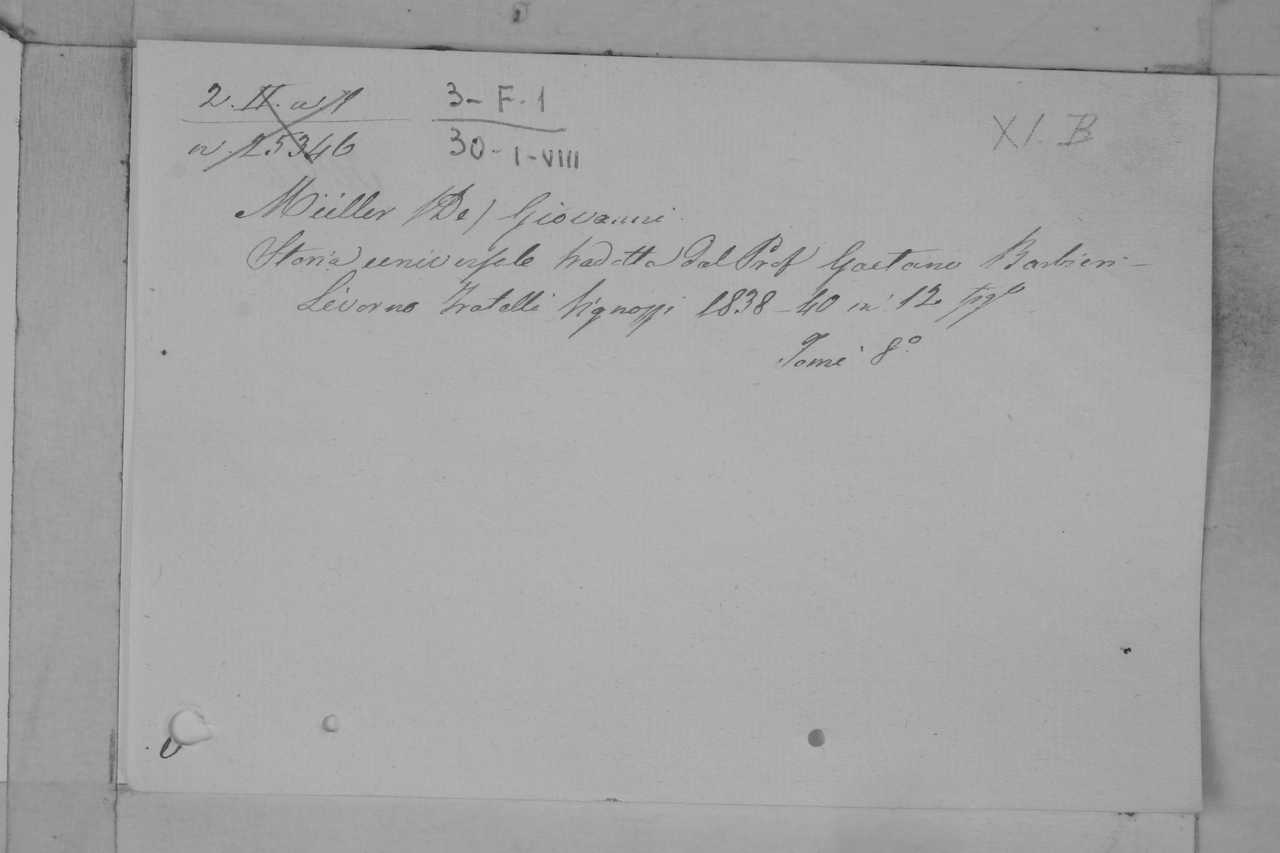 2. II. 3- F. 1
n. 25346 30-I-VIII
XI. B
Müller (De) Giovanni
Storia universale tradotta dal Prof Gaetano Barbieri-
Livorno Fratelli Vignozzi 1838-40 in 12 figo
Tomi 8°.